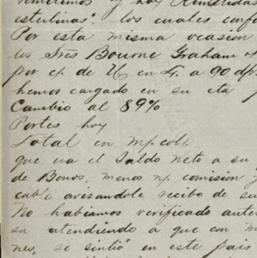 vendimos y hoy remitidas
esterlinas". los cuales conf
Por esta misma ocasion
los Srēs Bourne Graham
por cp. de U. en L. a 90 dp
hemos cargado en su cta
Cambio al 89%
Portes hoy
Total en mp. colb
que va el Saldo Neto a su
de Bonos, menos np. comision
cable avisandole recibo de su
No habiamos verificado ante
sa atendiendo a que con m
nes, se sintió en este pais